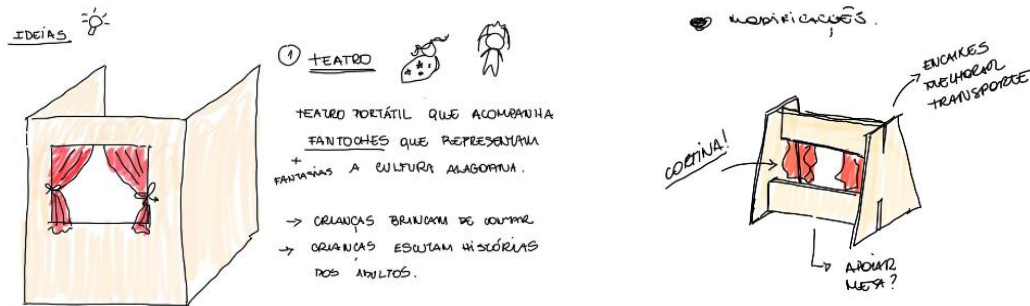 IDEIAS
① TEATRO
TEATRO PORTÁTIL QUE ACOMPANHA
FANTOCHES QUE REPRESENTAM
+
FANTASIAS A CULTURA ALAGOANA.
→ CRIANÇAS BRINCAM DE CONTAR
→ CRIANÇAS ESCUTAM HISTÓRIAS
DOS ADULTOS.
MODIFICAÇÕES.
ENCAIXES
MELHORAR
TRANSPORTE
CORTINA!
APOIAR
MESA?